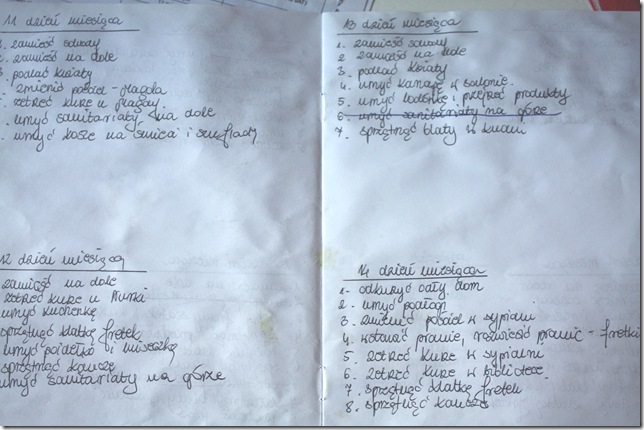 11 dzień miesiąca
zamieść schody
zamieść na dole
podlać kwiaty
zmienić pościel - Magda
zetrzeć kurze u Magdy
umyć sanitariaty na dole
umyć kosze na śmieci i szuflady
12 dzień miesiąca
zamieść na dole
zetrzeć kurze u
umyć kuchenkę
sprzątnąć klatkę fretek
umyć poidełko i miseczkę
sprzątnąć
umyć sanitariaty na górze
13 dzień miesiąca
1. zamieść schody
2 zamieść na dole
3 podlać kwiaty
4 umyć kanapę w salonie
5. umyć lodówkę i przejrzeć produkty
6 umyć sanitariaty na górze
7. sprzątnąć blaty w kuchni
14 dzień miesiąca
1- odkurzyć cały dom
2- umyć podłogi
3- zmienić pościel w sypialni
4. pranie, rozwiesić pranie - fretki
5. zetrzeć kurze w sypialni
6. zetrzeć kurze w bibliotece
7. sprzątnąć klatkę fretek
8. sprzątnąć